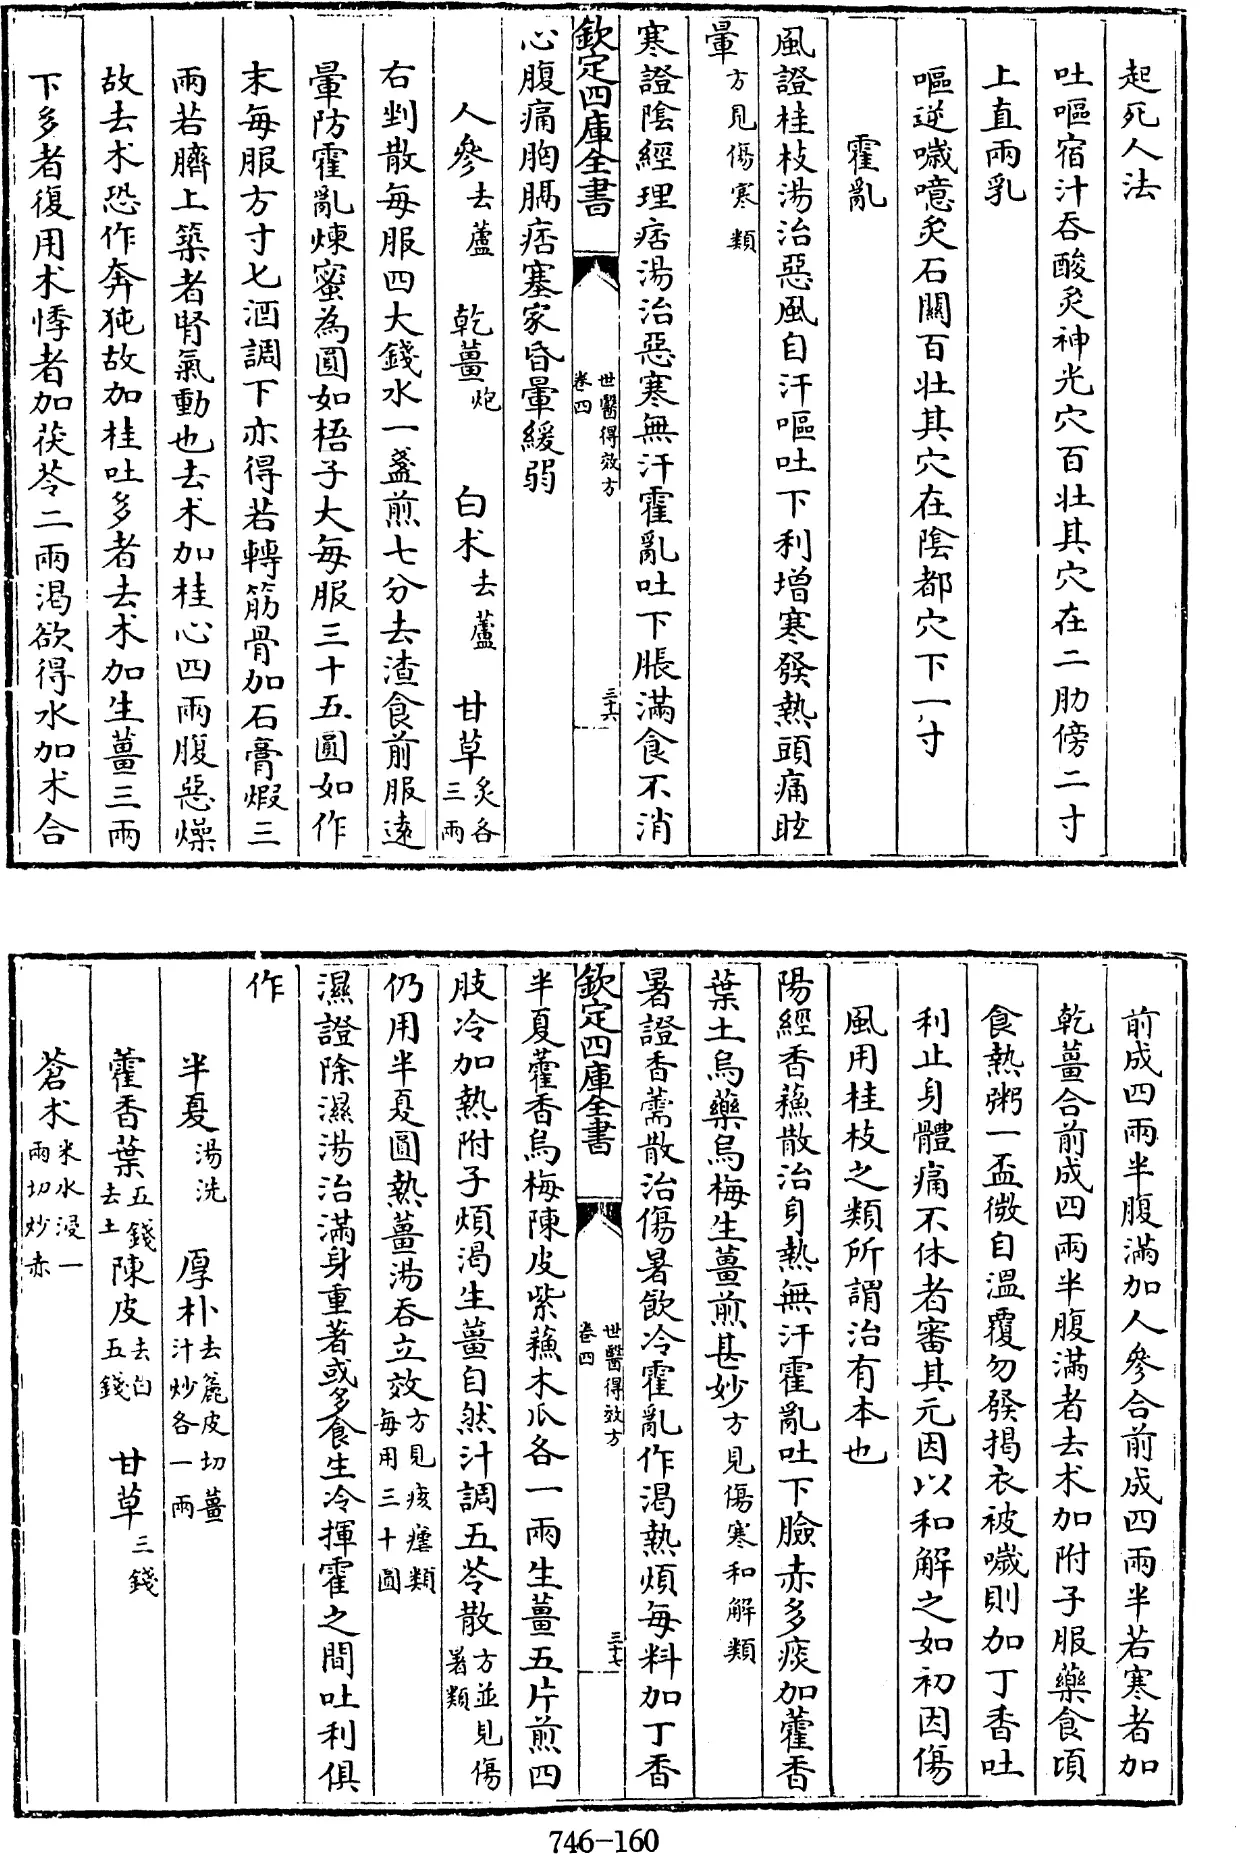 起死人法
吐嘔宿汁吞酸灸神光穴百壯其穴在二肋傍二寸
上直兩乳
嘔逆噦噫灸石關百壯其穴在陰都穴下一寸
霍亂
風證桂枝湯治惡風自汗嘔吐下利增寒發熱頭痛眩
暈方見傷寒類
寒證陰經理痞湯治惡寒無汗霍亂吐下脹滿食不消
欽定四庫全書
世醫得效方
卷四
三十六
心腹痛胸膈痞塞家昏暈緩弱
人參去蘆 乾薑炮 白朮去蘆 甘草炙各三兩
右剉散每服四大錢水一盞煎七分去渣食前服遠
暈防霍亂煉蜜為圓如梧子大每服三十五圓如作
末每服方寸匕酒調下亦得若轉筋骨加石膏煆三
兩若臍上築者腎氣動也去朮加桂心四兩腹惡燥
故去朮恐作奔㹠故加桂吐多者去朮加生薑三兩
下多者復用朮悸者加茯苓二兩渴欲得水加朮合
前成四兩半腹滿加人參合前成四兩半若寒者加
乾薑合前成四兩半腹滿者去朮加附子服藥食頃
食熱粥一盃微自溫覆勿發揭衣被噦則加丁香吐
利止身體痛不休者審其元因以和解之如初因傷
風用桂枝之類所謂治有本也
陽經香蘓散治身熱無汗霍亂吐下臉赤多痰加藿香
葉土烏藥烏梅生薑煎甚妙方見傷寒和解類
暑證香薷散治傷暑飲冷霍亂作渴熱煩每料加丁香
欽定四庫全書
世醫得效方
卷四
三十七
半夏藿香烏梅陳皮紫蘓木瓜各一兩生薑五片煎四
肢冷加熱附子煩渴生薑自然汁調五苓散方並見傷暑類
仍用半夏圓熱薑湯吞立效方見痎瘧類每用三十圓
濕證除濕湯治滿身重著或多食生冷揮霍之間吐利俱
作
半夏湯洗 厚朴去麄皮切薑汁炒各一兩
藿香葉五錢去土 陳皮去白五錢 甘草三錢
蒼朮米水浸一兩切炒赤
746-160